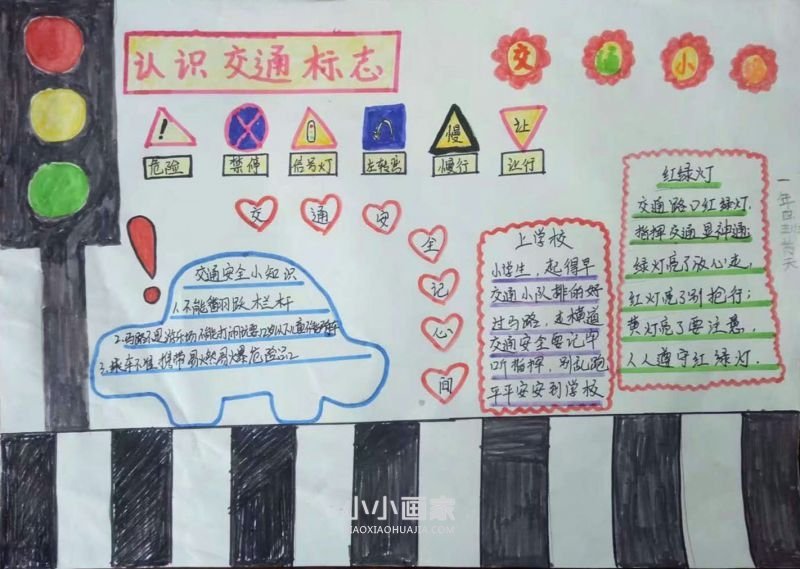 认识交通标志
交 通 小
危险
禁停
信号灯
左转弯
慢
慢行
让
让行
交通安全记心间
交通安全小知识
1.不能翻阅队栏杆
3.乘车不准携带易燃易爆危险品
上学校
小学生，起得早
交通小队排的好
过马路，走横道
交通安全要记牢
听指挥，别乱跑
平平安安到学校
红绿灯
交通路口红绿灯.
指挥交通显神通;
绿灯亮了放心走,
红灯亮了别抢行;
黄灯亮了要注意,
人人遵守红绿灯.
一年四班
小小画家
XIAOXIAOHUAJIA.COM